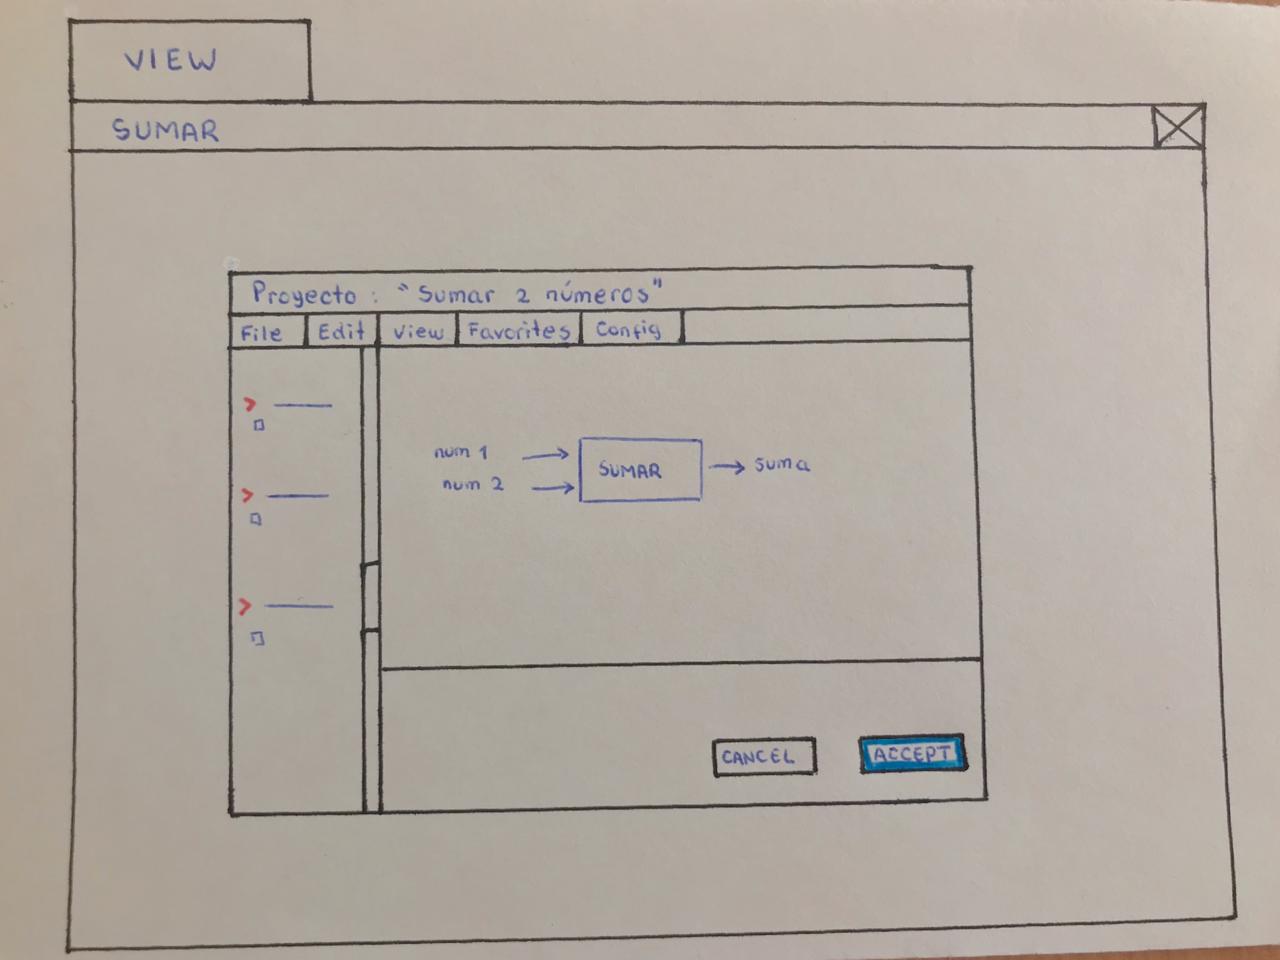 VIEW
SUMAR
Proyecto : "Sumar 2 números"
File Edit View Favorites Config
num 1
num 2
SUMAR
suma
CANCEL ACCEPT